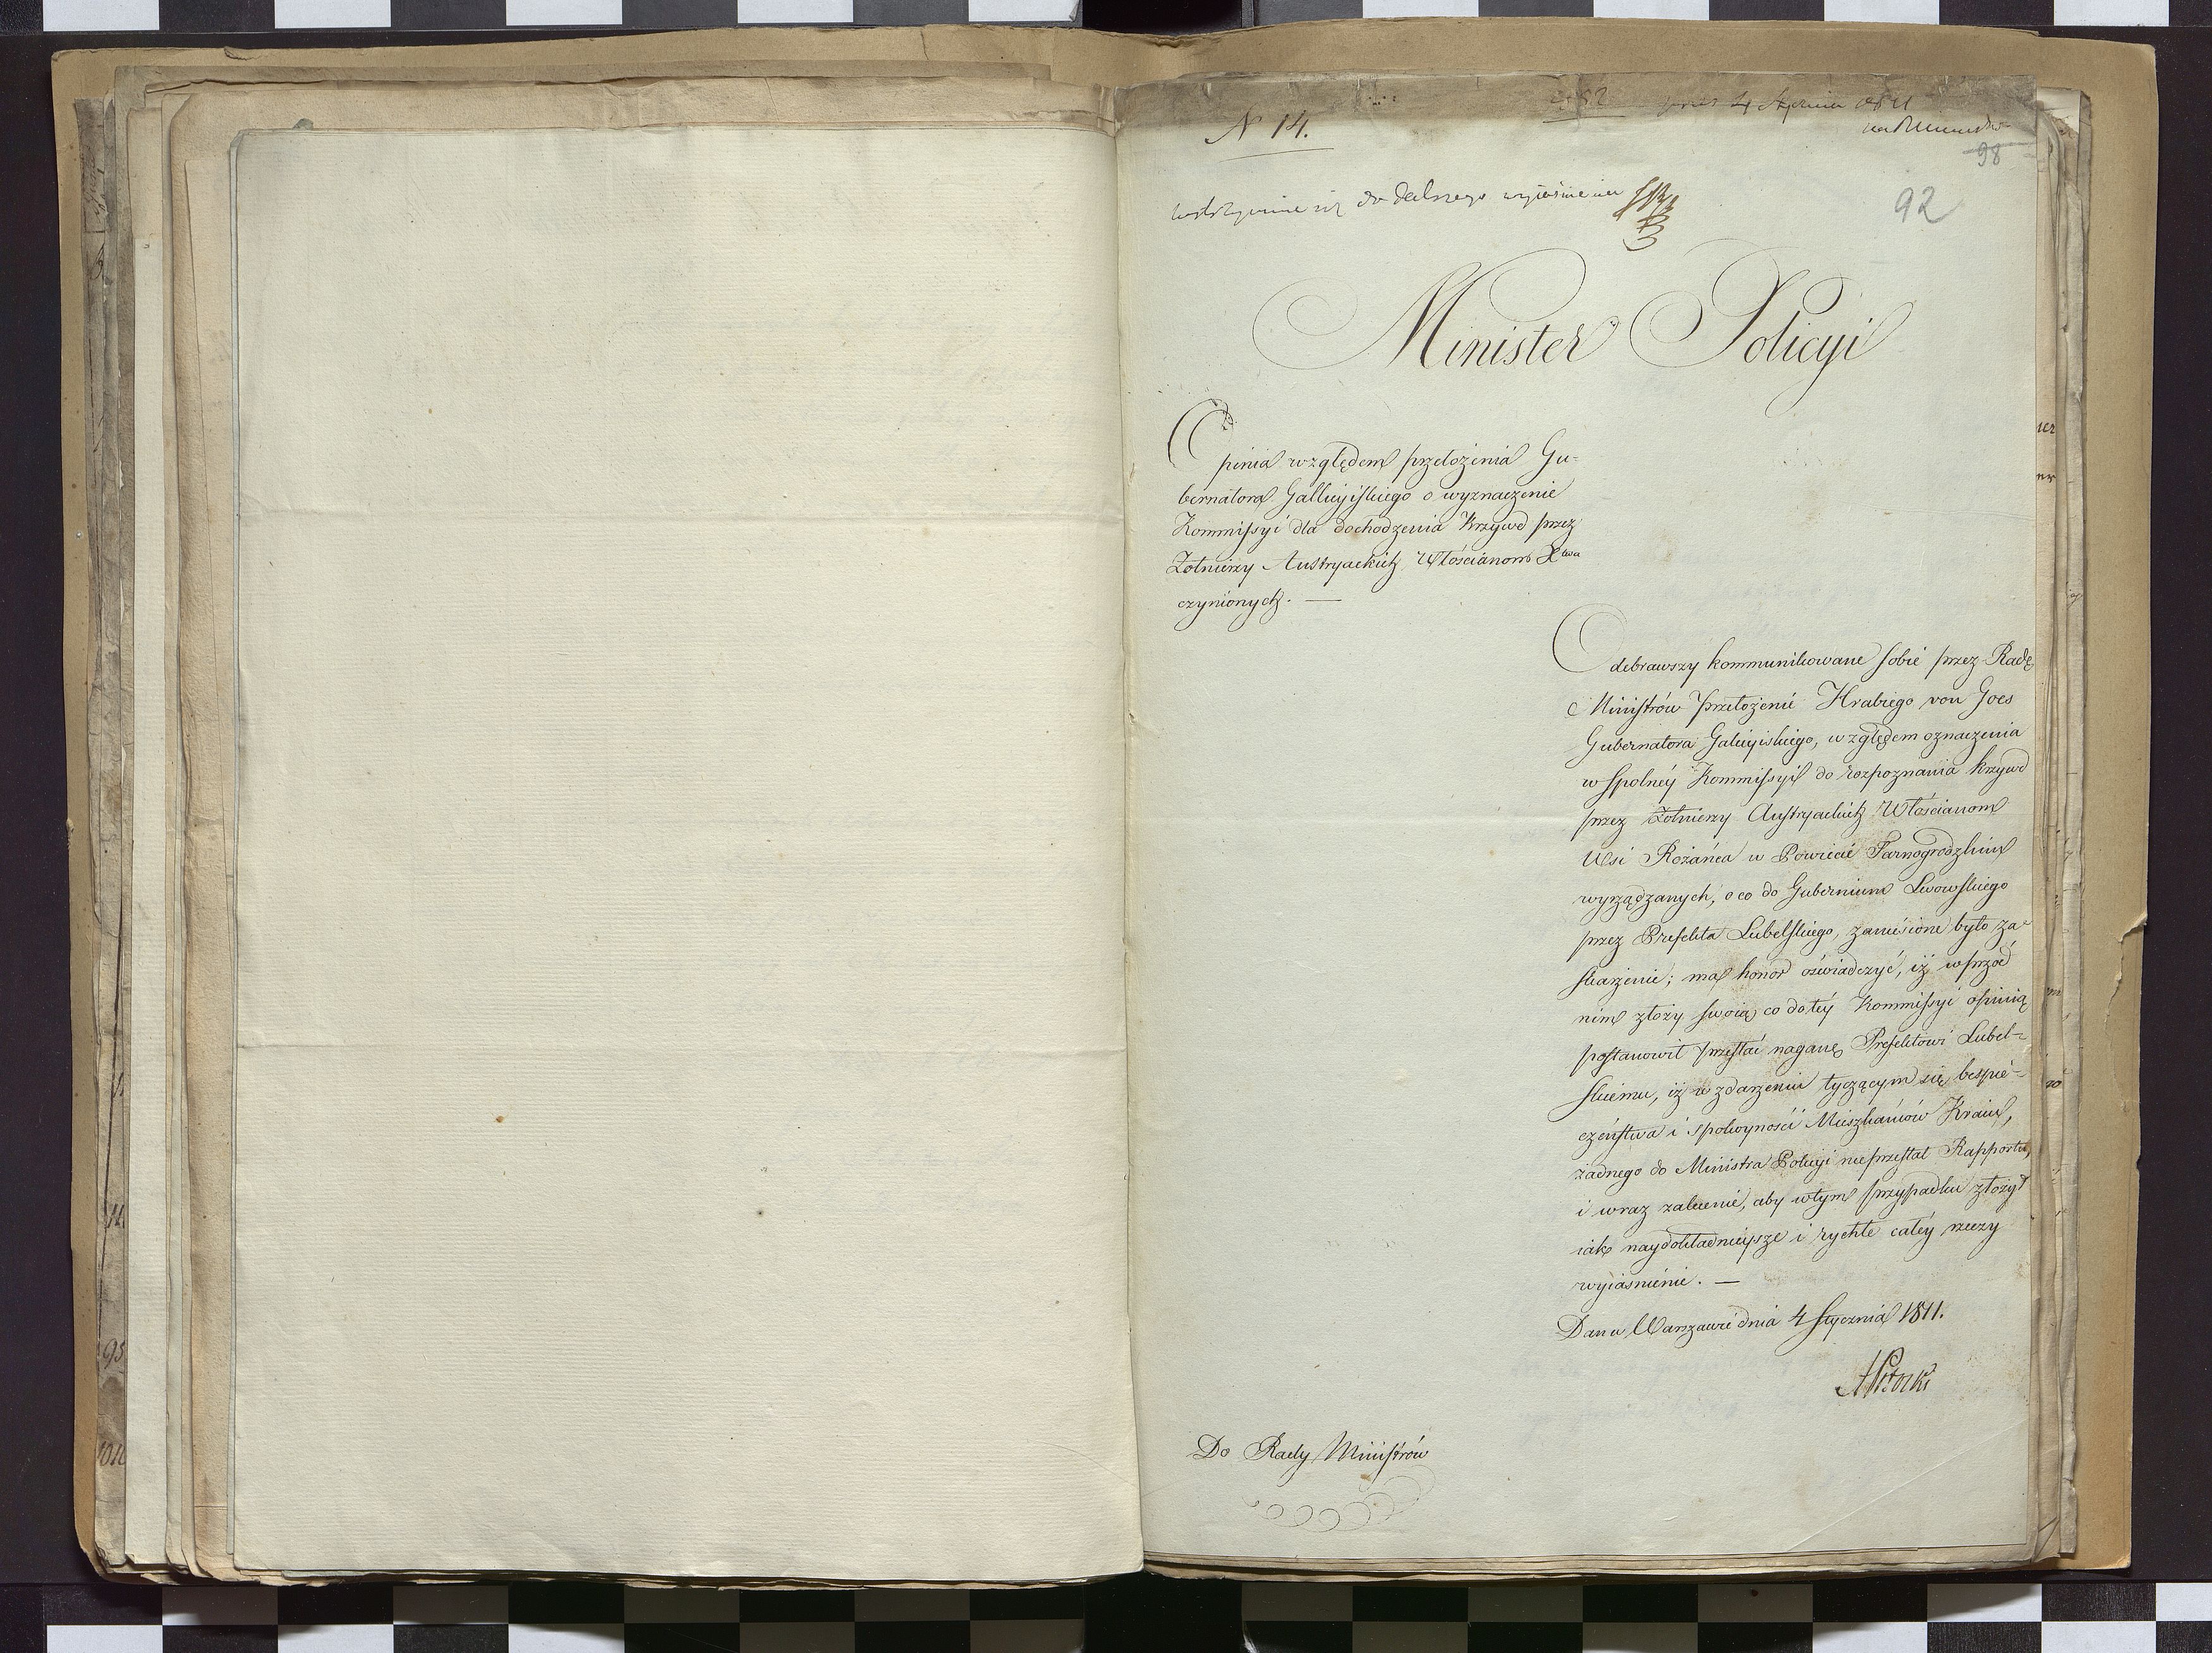 N 14.
4 Stycznia 1811
98
wstrzymanie się do dalszego wyjaśnienia
92
Minister Policyi
Opinia względem przełożenia Gu-
bernatora Gallicyiskiego o wyznaczenie
Kommissyi dla dochodzenia krzywd przez
Żołnierzy Austryackich Włościanom Xtwa
czynionych. —
Odebrawszy kommunikowane sobie przez Radę
Ministrów przełożenie Hrabiego von Goes
Gubernatora Galicyiskiego, względem oznaczenia
wspolney Kommissyi do rozpoznania krzywd
przez Żołnierzy Austryackich Włościanom
Wsi Rożańca w Powiecie Tarnogrodzkim
wyrządzanych, o co do Gubernium Lwowskiego
przez Prefekta Lubelskiego, zaniesione było za-
skarżenie; ma honor oświadczyć, iż wprzod
nim złoży swoią co do tey Kommissyi opinią
postanowił przesłać naganę Prefektowi Lubel-
skiemu, iż w zdarzeniu tyczącym się bespie-
czeństwa i spokoyności Mieszkańców Kraiu,
żadnego do Ministra Policyi nieprzesłał Rapportu,
i wraz zalecenie, aby wtym przypadku złożył
iak naydokładnieysze i rychłe całey rzeczy
wyiaśnienie. —
Dan w Warszawie dnia 4 Stycznia 1811.
APotocki
Do Rady Ministrów